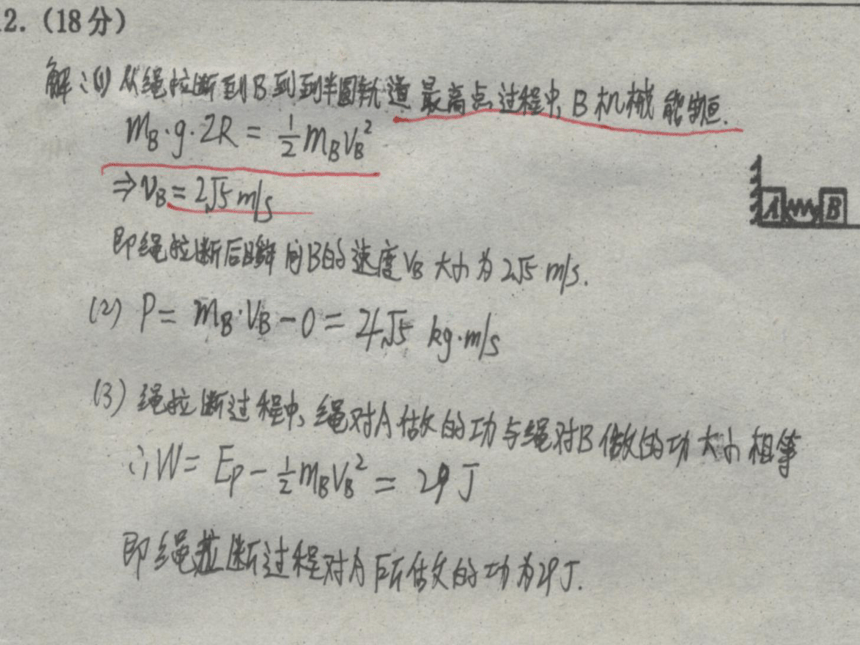 2.(18分)
解:(1)从绳拉断到B到到半圆轨道最高点过程中,B机械能守恒.
m_B·g·2R = \frac{1}{2}m_Bv_B^2
⇒v_B = 2√5 m/s
A B
即绳拉断后瞬间B的速度v_B大小为2√5 m/s.
(2) P = m_B·v_B - 0 = 4√5 kg·m/s
(3) 绳拉断过程中,绳对A做的功与绳对B做的功大小相等
∴W = E_p - \frac{1}{2}m_Bv_B^2 = 29 J
即绳拉断过程对A所做的功为29J.